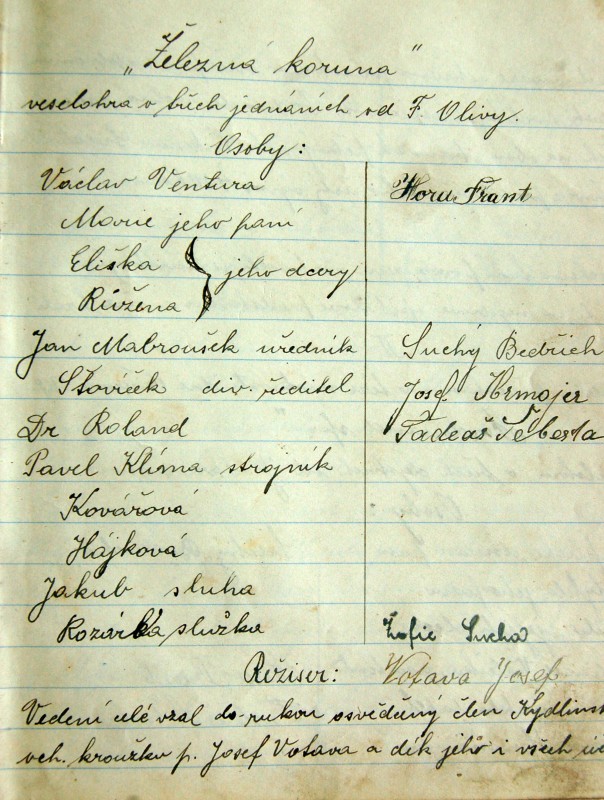 „Železná koruna"
veselohra v třech jednáních od F. Olivy.
Osoby:
Václav Ventura Horu Frant
Marie jeho paní
Eliška } jeho dcery
Růžena
Jan Mabroušek uředník Suchý Bedřich
Šťovíček div. ředitel Josef
Dr Roland Tadeáš Šeberla
Pavel Klíma strojník
Kovářová
Hájková
Jakub sluha
Rozárka služka Žofie Sucha
Režiser: Votava Josef
Vedení celé vzal do rukou osvědčený člen Kydlinsk
och. kroužku p. Josef Votava a dík jeho i všech